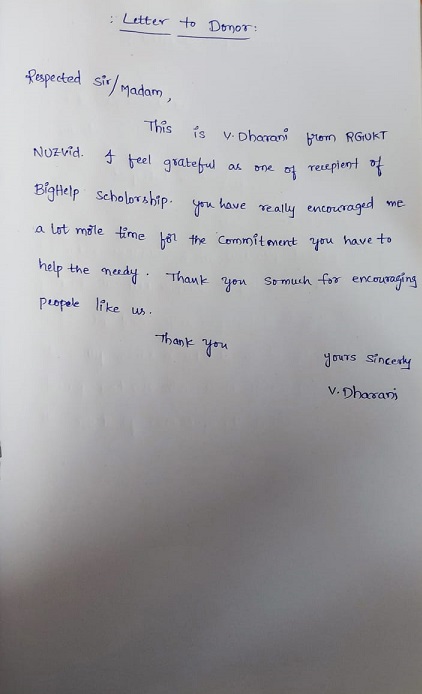 : Letter to Donor :
Respected Sir/Madam,
This is V. Dharani from RGUKT
Nuzvid. I feel grateful as one of recepient of
BigHelp Scholorship. you have really encouraged me
a lot more time for the commitment you have to
help the needy. Thank you somuch for encouraging
peopele like us.
Thank you
yours sincerly
V. Dharani